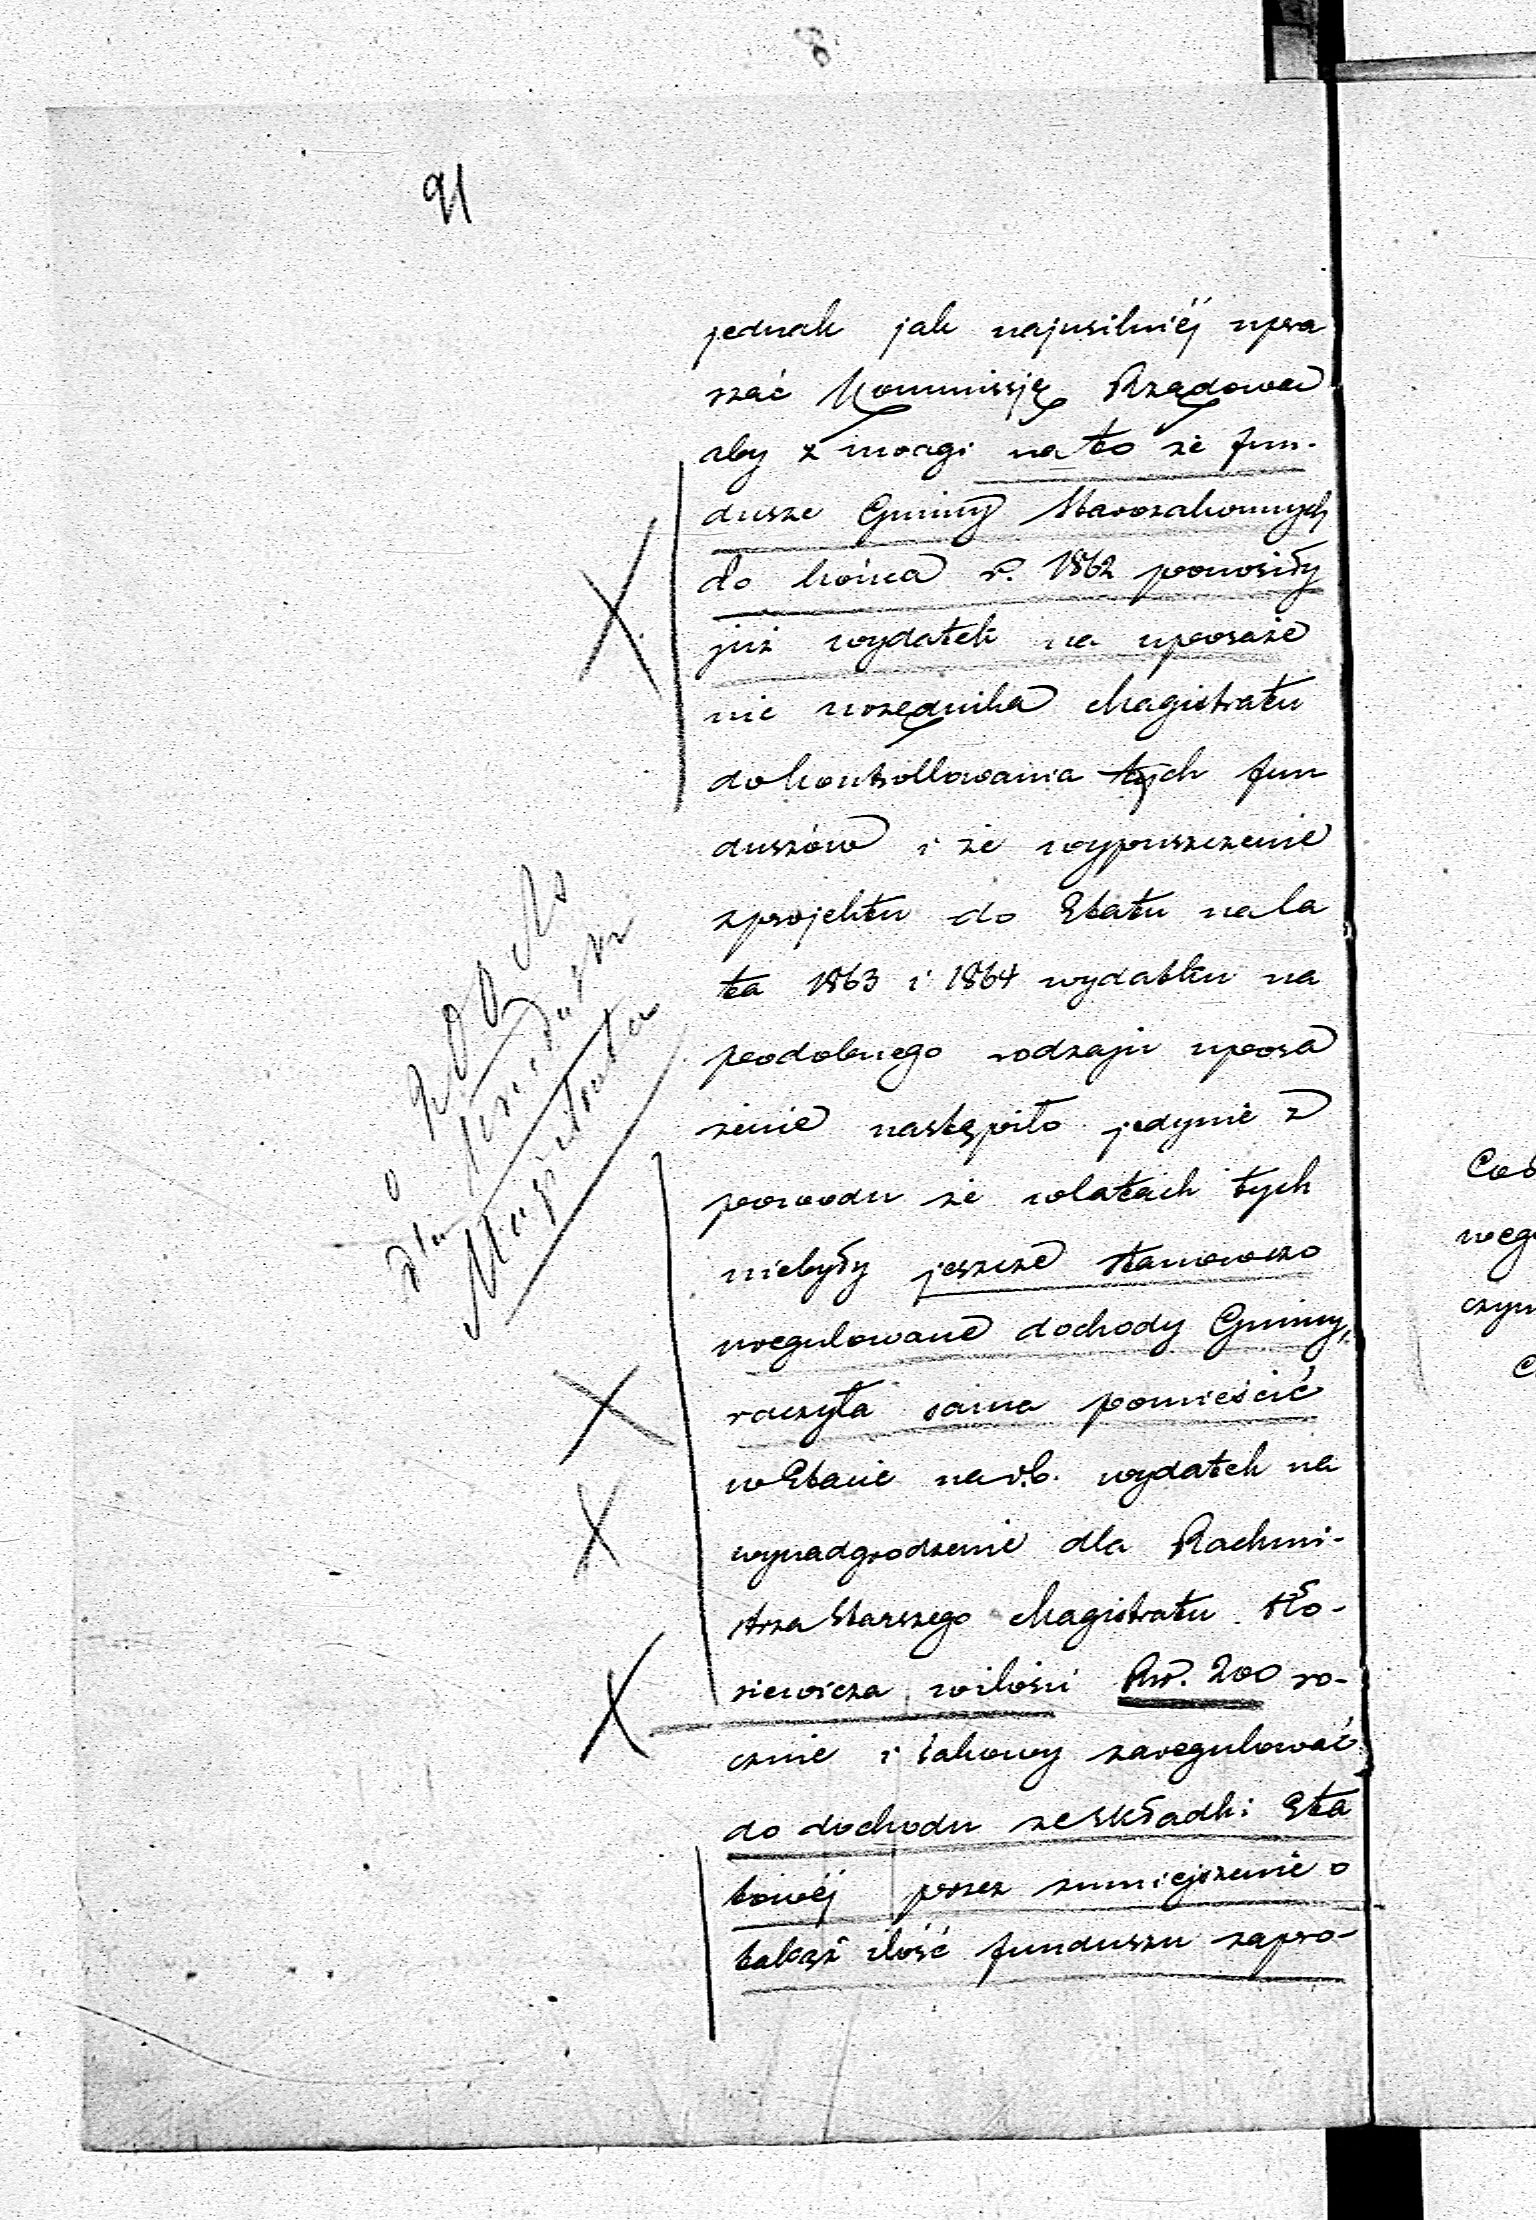 91
jednak jak najusilniéj upra
szać Kommissję Rządową
aby z uwagi na to że fun-
dusze Gminy Starozakonnych
do końca r. 1862 ponosiły
już wydatek na uposaże
nie urzędnika Magistratu
do kontrollowania tych fun
duszów i że wypuszczenie
z projektu do Etatu na la
ta 1863 i 1864 wydatku na
podobnego rodzaju uposa
żenie nastąpiło jedynie z
powodu że w latach tych
niebyły jeszcze stanowczo
uregulowane dochody Gminy,
raczyła sama pomieścić
w Etacie na r.b. wydatek na
wynadgrodzenie dla Rachmi-
strza Starszego Magistratu Kło-
siewicza w ilości Rsr. 200 ro-
cznie i takowy zaregulować
do dochodu ze składki Eta
towéj przez zmniejszenie o
takąż ilość funduszu zapro-
200 Rs
dla
Magistratu